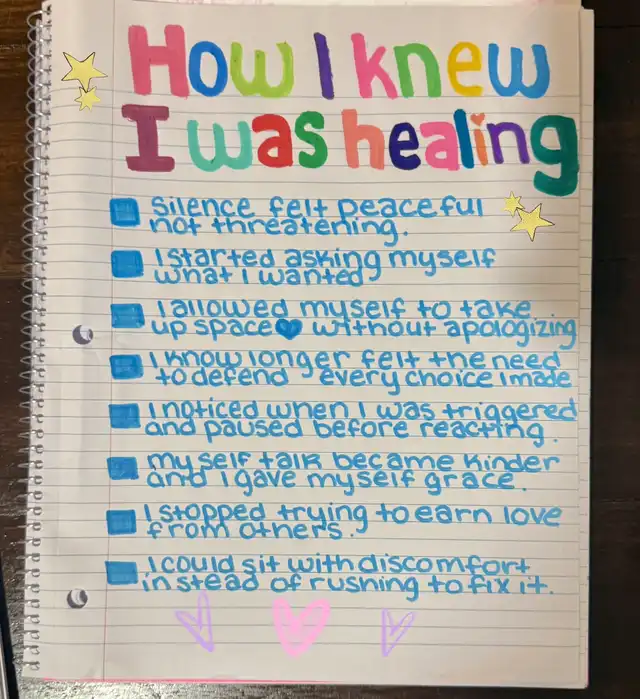 How I knew
I was healing
Silence felt peaceful
not threatening.
I started asking myself
what I wanted
I allowed myself to take
up space without apologizing
I know longer felt the need
to defend every choice I made
I noticed when I was triggered
and paused before reacting.
my self talk became kinder
and I gave myself grace.
I stopped trying to earn love
from others.
I could sit with discomfort
in stead of rushing to fix it.